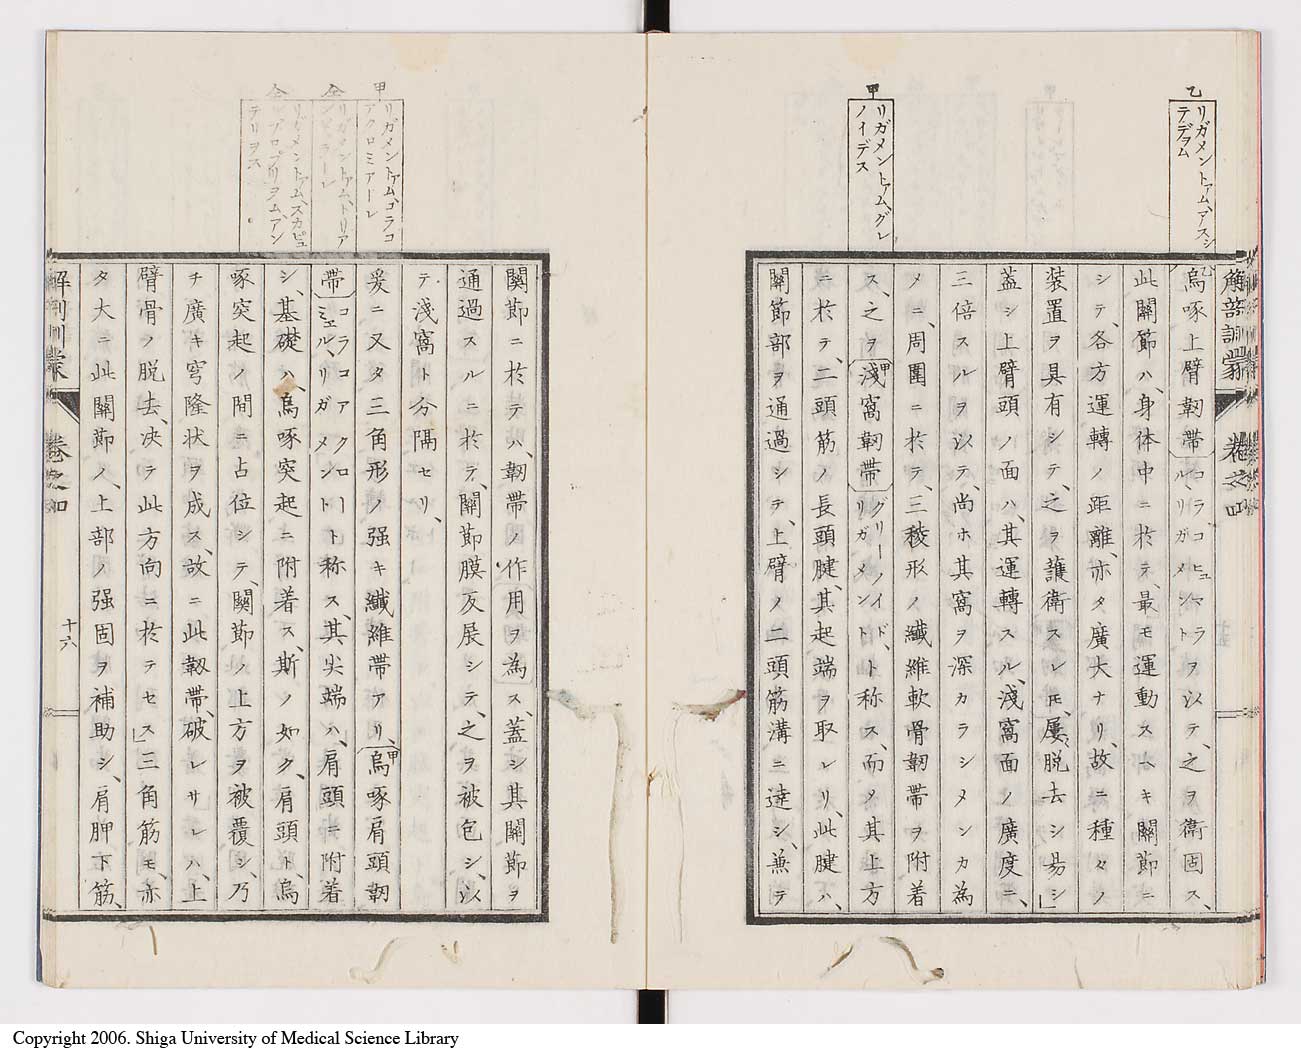 乙
リガメントァム、アスシ
テデヲム
甲
リガメントァム、グレ
ノイデス
解剖訓蒙 卷之四
烏啄上臂韌帶コラコヒュマラ
ルリガメントヲ以テ、之ヲ衛固ス、
此關節ハ、身体中ニ於テ、最モ運動スヘキ關節ニ
シテ、各方運轉ノ距離、亦タ廣大ナリ、故ニ種々ノ
装置ヲ具有シテ、之ヲ護衛スレ𪜈、屢〻脱去シ易シ」
蓋シ上臂頭ノ面ハ、其運轉スル、淺窩面ノ廣度ニ、
三倍スルヲ以テ、尚ホ其窩ヲ深カラシメンカ為
メニ、周圍ニ於テ、三稜形ノ纎維軟骨韌帶ヲ附着
ス、之ヲ淺窩韌帶グリーノイド、
リガメントト称ス、而メ其上方
ニ於テ、二頭筋ノ長頭腱、其起端ヲ取レリ、此腱ハ、
關節部ヲ通過シテ、上臂ノ二頭筋溝ニ達シ、兼テ
甲
リガメントァム、コラコ
アクロミアーレ
仝
リガメントァム、トリア
仝
リガメントァム、スカピュ
プロプリヲム、アン
テリヲス
關節ニ於テハ、韌帶ノ作用ヲ為ス、蓋シ其關節ヲ
通過スルニ於テ、關節膜反展シテ、之ヲ被包シ、以
テ淺窩ト分隔セリ、
爰ニ又タ三角形ノ强キ纎維帶アリ、烏啄肩頭韌
帶コラコアクロー
ミェル、リガメントト称ス、其尖端ハ、肩頭ニ附着
シ、基礎ハ、烏啄突起ニ附着ス、斯ノ如ク、肩頭ト、烏
啄突起ノ間ニ占位シテ、關節ノ上方ヲ被覆シ、乃
チ廣キ穹隆状ヲ成ス、故ニ此韌帶、破レサレハ、上
臂骨ノ脱去、决テ此方向ニ於テセス」三角筋モ、亦
タ大ニ此關節ノ、上部ノ强固ヲ補助シ、肩胛下筋、
解剖訓蒙 卷之四 十六
Copyright 2006. Shiga University of Medical Science Library